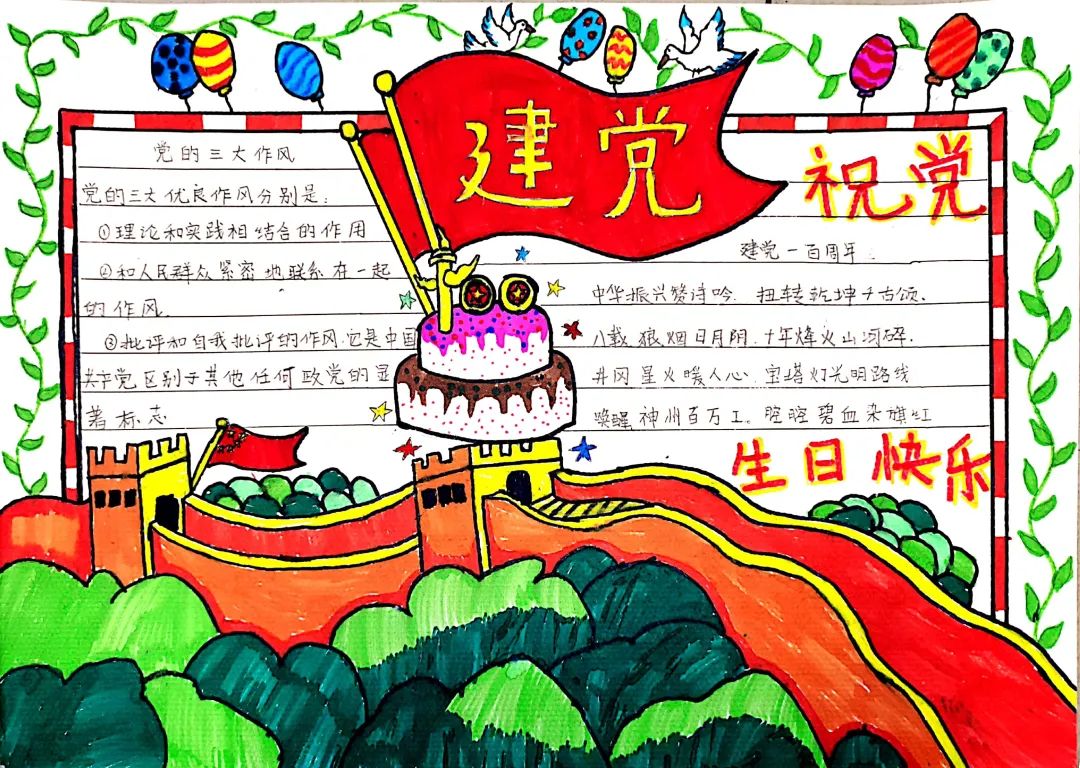 建党
祝党
党的三大作风
党的三大优良作风分别是：
①理论和实践相结合的作用
②和人民群众紧密地联系在一起
的作风.
③批评和自我批评的作风.它是中国
共产党区别于其他任何政党的显
著标志
建党一百周年.
中华振兴赞诗吟.扭转乾坤千古颂.
八载狼烟日月阴.十年烽火山河碎.
井冈星火暖人心.宝塔灯光明路线
唤醒神州百万工。腔腔碧血染旗红
生日快乐